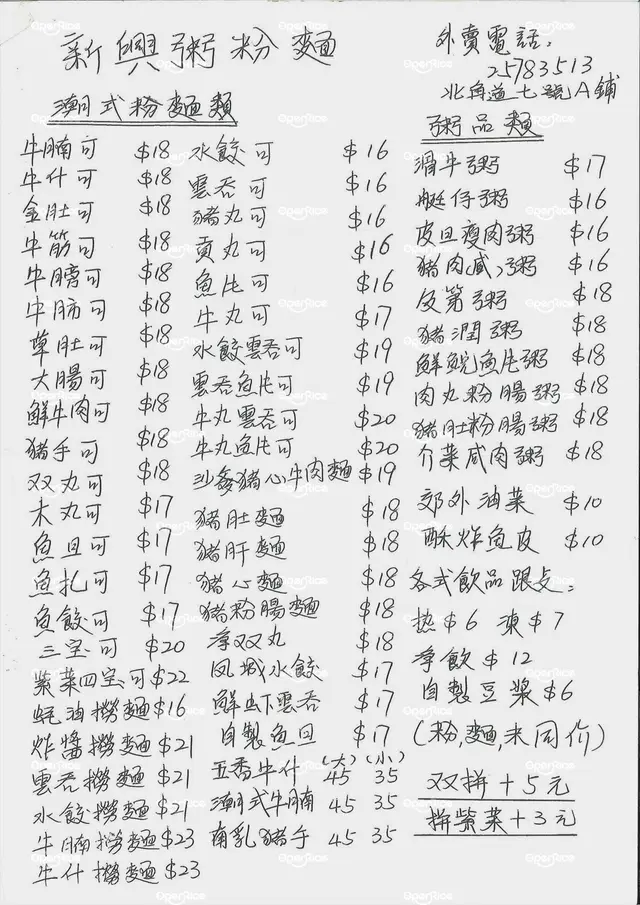 新興粥粉麵
外賣電話:
25783513
北角道七號A鋪
潮式粉麵類
牛腩可 $18
牛什可 $18
金肚可 $18
牛筋可 $18
牛膀可 $18
牛肺可 $18
草肚可 $18
大腸可 $18
鮮牛肉可 $18
猪手可 $18
双丸可 $18
木丸可 $17
魚旦可 $17
魚扎可 $17
魚餃可 $17
三宝可 $20
紫菜四宝可 $22
蚝油撈麵 $16
炸醬撈麵 $21
雲吞撈麵 $21
水餃撈麵 $21
牛腩撈麵 $23
牛什撈麵 $23
水餃可 $16
雲吞可 $16
猪丸可 $16
貢丸可 $16
魚片可 $16
牛丸可 $17
水餃雲吞可 $19
雲吞魚片可 $19
牛丸雲吞可 $20
牛丸魚片可 $20
沙爹猪心牛肉麵 $19
猪肚麵 $18
猪肝麵 $18
猪心麵 $18
猪粉腸麵 $18
净双丸 $18
凤城水餃 $17
鮮虾雲吞 $17
自製魚旦 $17
(大) (小)
五香牛什 45 35
潮式牛腩 45 35
南乳猪手 45 35
粥品類
滑牛粥 $17
艇仔粥 $16
皮旦瘦肉粥 $16
猪肉(咸)粥 $16
及第粥 $18
猪潤粥 $18
鮮鯇魚片粥 $18
肉丸粉腸粥 $18
猪肚粉腸粥 $18
介菜咸肉粥 $18
郊外油菜 $10
酥炸魚皮 $10
各式飲品跟点:
热 $6 凍 $7
净飲 $12
自製豆漿 $6
(粉,麵,米同价)
双拼+5元
拼紫菜+3元